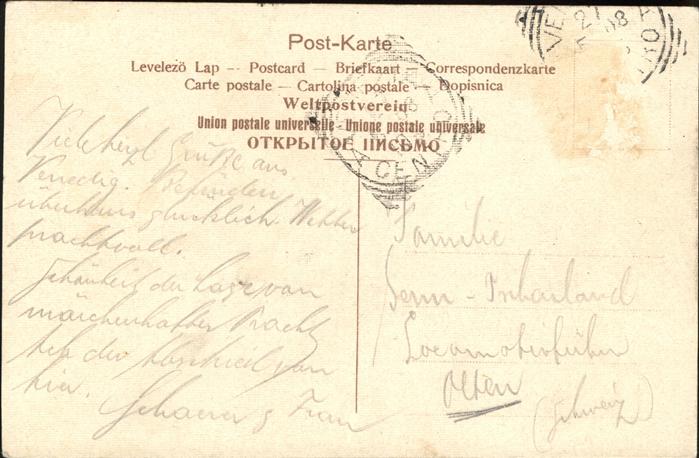 Post-Karte
Levelezö Lap — Postcard — Briefkaart — Correspondenzkarte
Carte postale — Cartolina postale — Dopisnica
Weltpostverein
Union postale universelle - Unione postale universale
ОТКРЫТОЕ ПИСЬМО
VE
27
08
CENTRO
Viele herzl Grüße aus
Venedig. Befinden
überaus glücklich. Wetter
prachtvoll.
Schönheit der Lage von
märchenhafter Pracht
der Abschied von
hier.
Schaerer & Frau
Familie
Senn-Inhauland
Locomotivführer
Olten
(Schweiz)